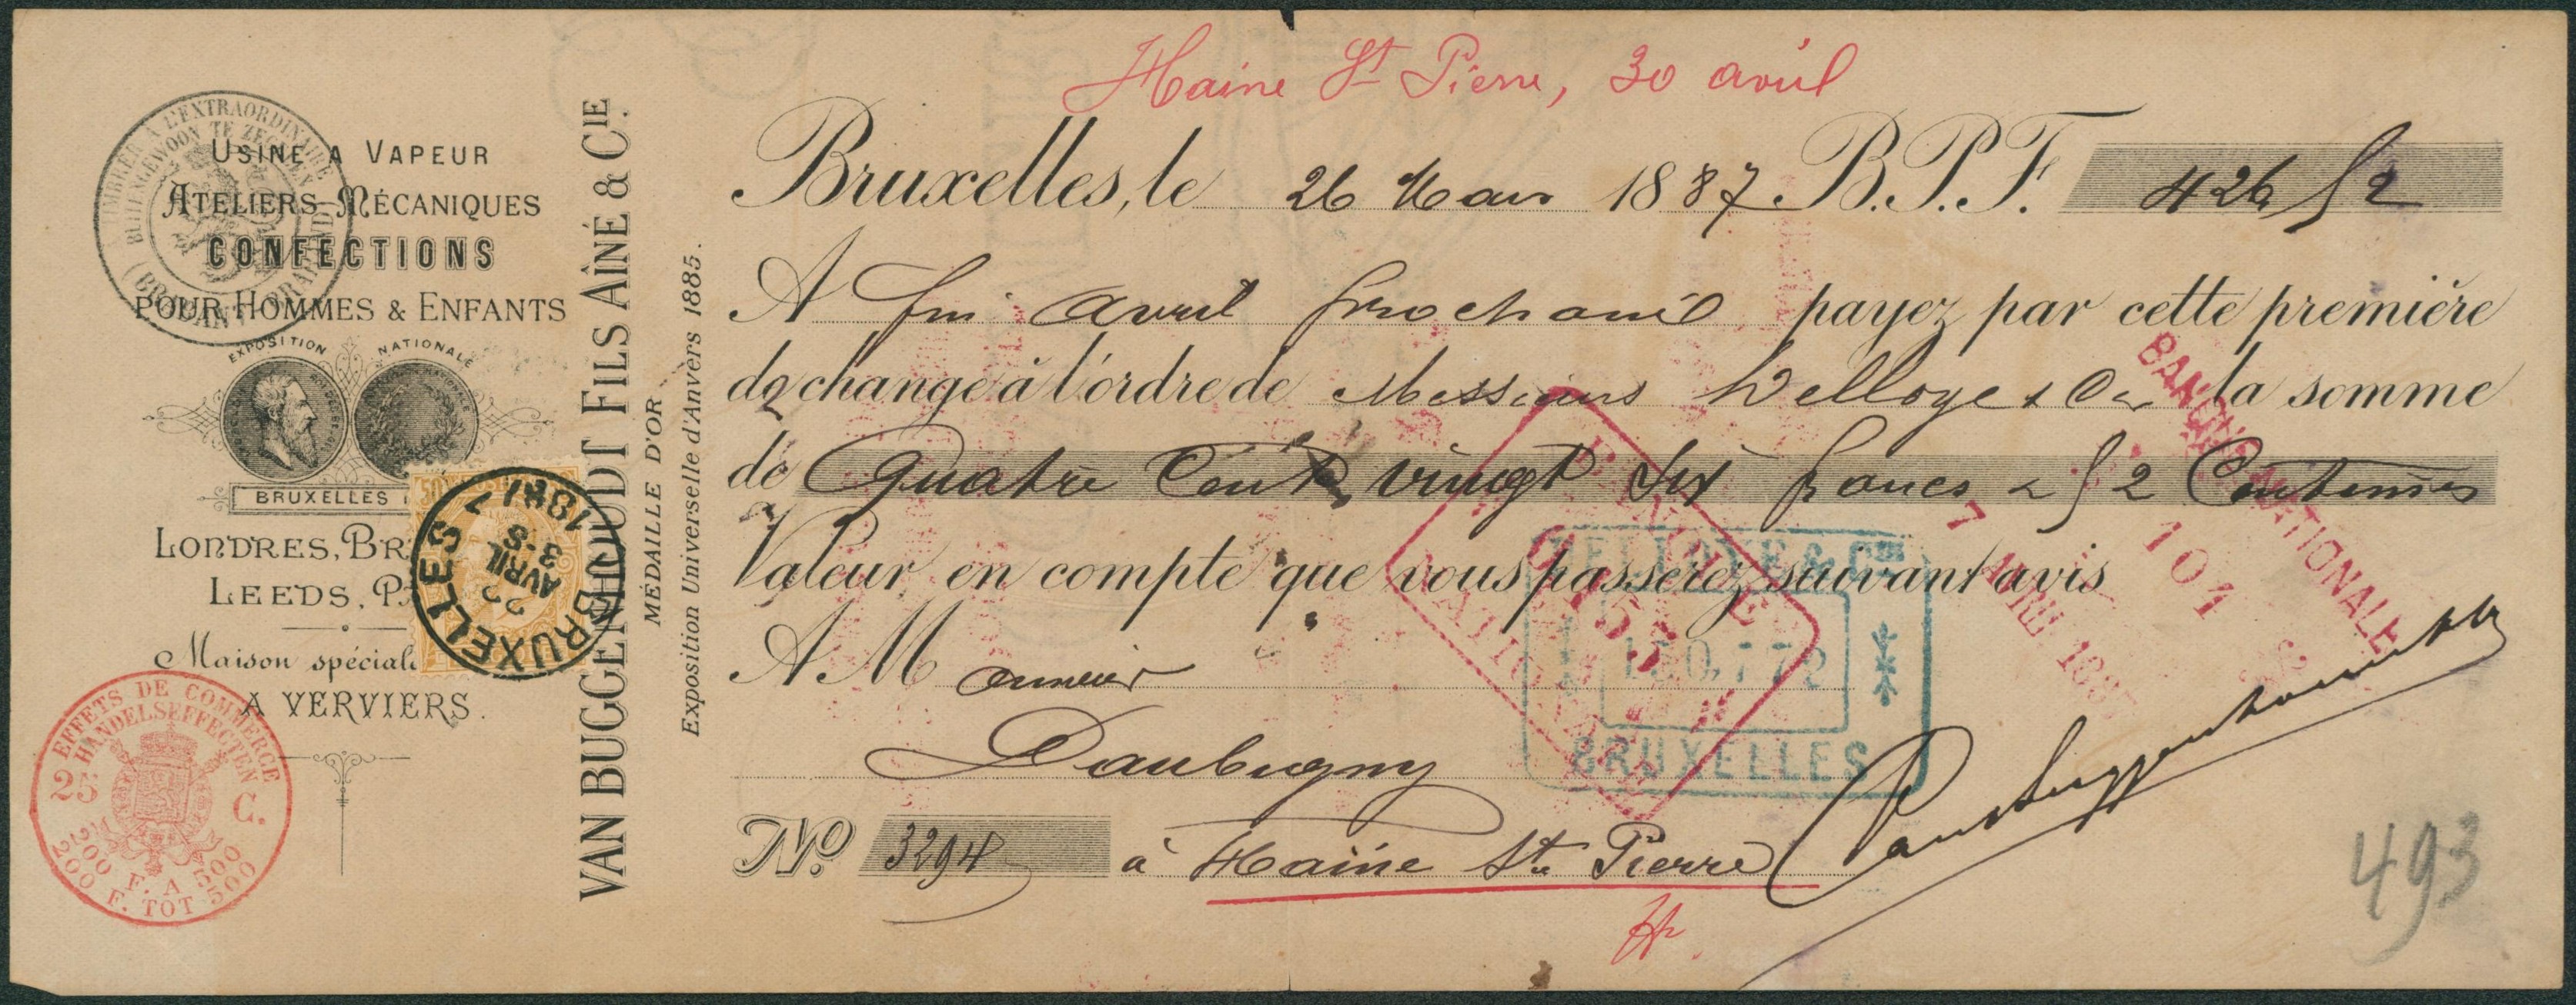 Haine St Pierre, 30 avril
TIMBRER A L'EXTRAORDINAIRE
BUITENGEWOON TE ZEGELEN
(BRABANT BRABAND)
USINE A VAPEUR
ATELIERS MÉCANIQUES
CONFECTIONS
POUR HOMMES & ENFANTS
EXPOSITION NATIONALE
BRUXELLES
LONDRES, BR
LEEDS, PA
Maison spéciale
A VERVIERS.
EFFETS DE COMMERCE
HANDELSEFFECTEN
25 C.
200 F. A 500
200 F. TOT 500
BRUXELLES
22
AVRIL
3-S
1887
VAN BUGGENHOUDT FILS AÎNÉ & CIE.
MÉDAILLE D'OR
Exposition Universelle d'Anvers 1885.
Bruxelles, le 26 Mars 1887 B.P.F. 426 52
A fin avril prochain payez par cette première
de change à l'ordre de Messieurs Delloye & Cie la somme
de Quatre Cent vingt six francs & 52 Centimes
Valeur en compte que vous passerez suivant avis
A Monsieur
Daubigny
No. 3294 à Haine St Pierre
Vanbuggenhoudt
DELLOYE & Cie
150,772
BRUXELLES
BANQUE NATIONALE
101
7 AVRIL 1887
493